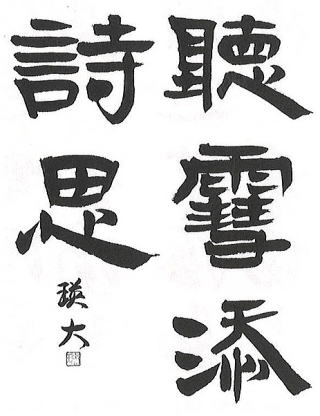 聽雪添
詩思
瑛大